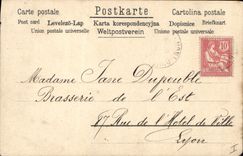 Carte postale Postkarte Cartolina postale
Post card Levelező-Lap Karta korespondencyjna Dopisnice Briefkaart
Union postale universelle Weltpostverein Union postale universelle
Madame Jane Dupeuble
Brasserie de l'Est
87 Rue de l'Hotel de Ville
Lyon